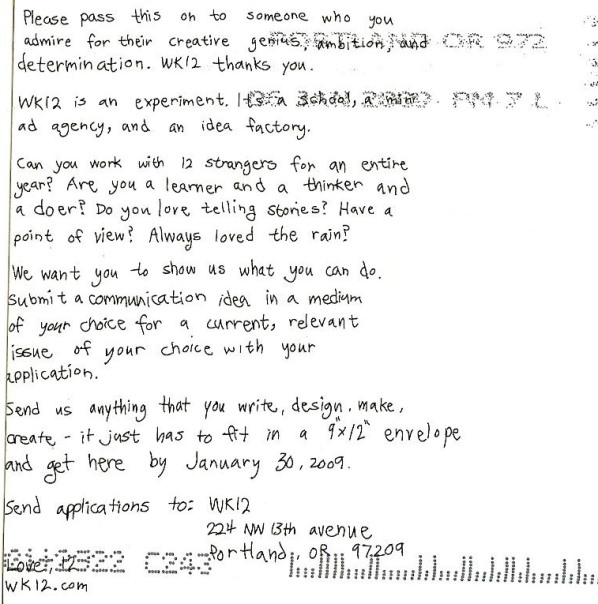 Please pass this on to someone who you
admire for their creative genius, ambition, and
PORTLAND OR 972
determination. WK12 thanks you.
WK12 is an experiment. It's a school, a mini
PM 7 L
ad agency, and an idea factory.
Can you work with 12 strangers for an entire
year? Are you a learner and a thinker and
a doer? Do you love telling stories? Have a
point of view? Always loved the rain?
We want you to show us what you can do.
Submit a communication idea in a medium
of your choice for a current, relevant
issue of your choice with your
application.
Send us anything that you write, design, make,
create - it just has to fit in a 9"x12" envelope
and get here by January 30, 2009.
Send applications to: WK12
224 NW 13th avenue
Portland, OR 97209
C243
Love, 12
WK12.com